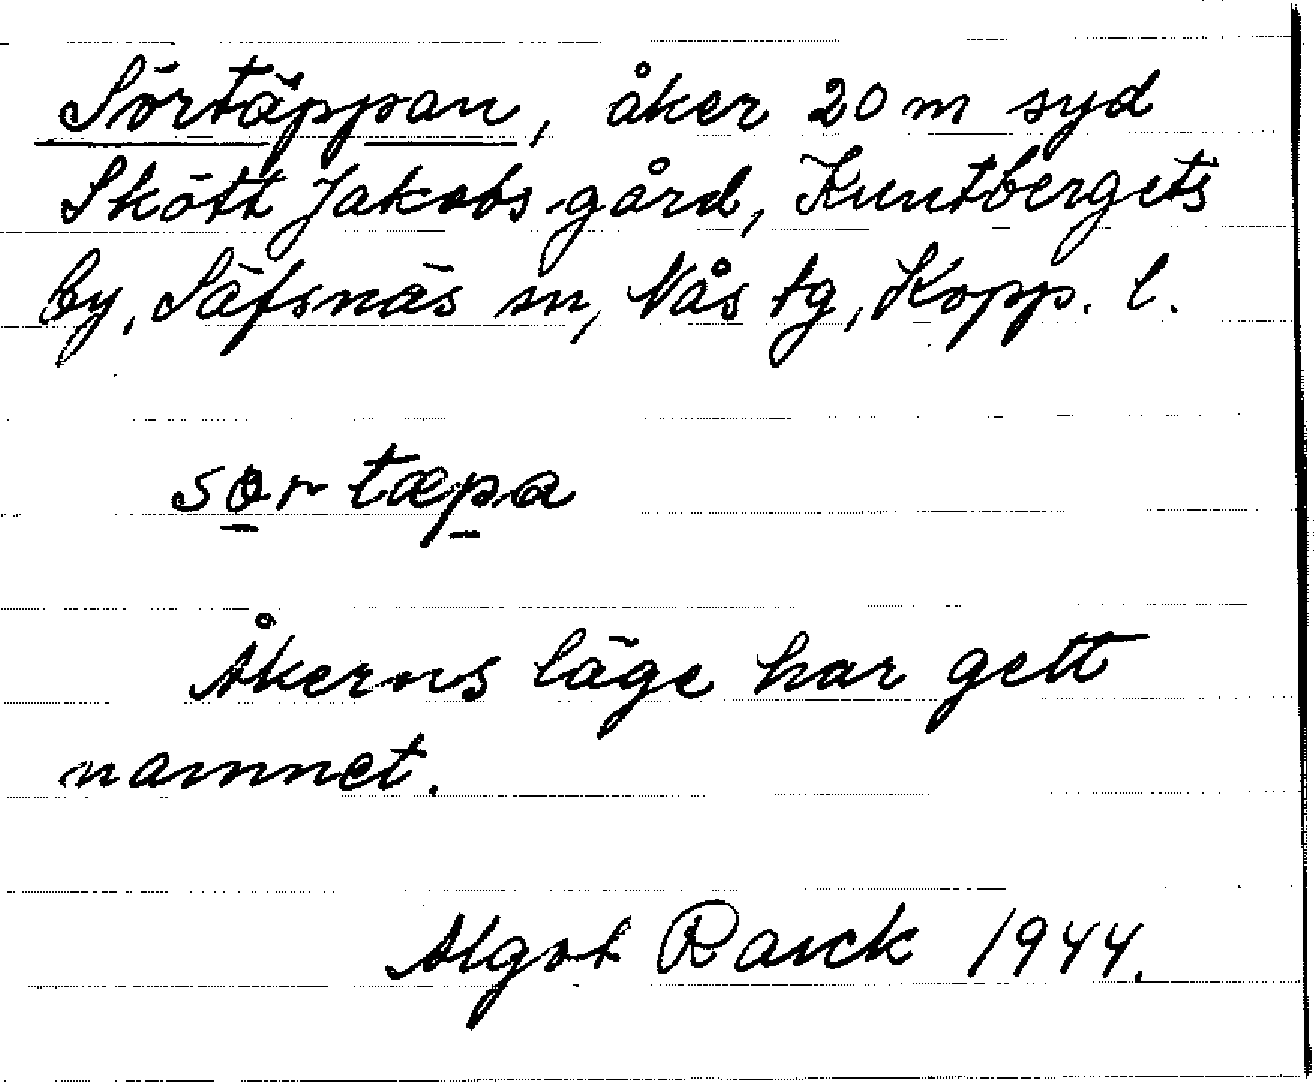 Sörtäppan, åker 20 m syd
Skött Jakobs gård, Kuntbergets
by, Säfsnäs sn, Nås tg, Kopp. l.
sør tæpa
Åkerns läge har gett
namnet.
Algot Rauck 1944.